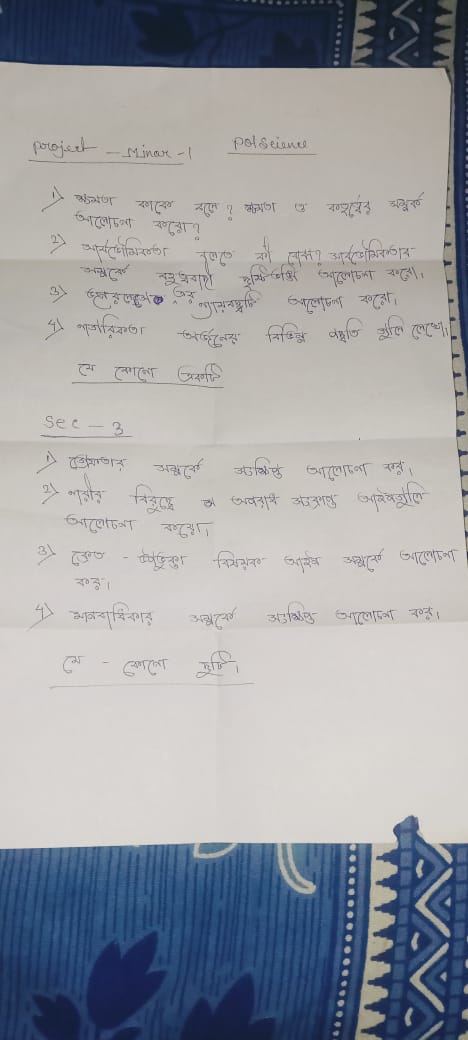 project - Minor - 1 Pol Science
1) ক্ষমতা কাকে বলে? ক্ষমতা ও কর্তৃত্বের সম্পর্ক
আলোচনা করো?
2) সার্বভৌমিকতা বলতে কী বোঝ? সার্বভৌমিকতার
সম্পর্কে বহুত্ববাদী দৃষ্টিভঙ্গি আলোচনা করো।
3) এর ন্যায়তত্ত্বটি আলোচনা করো।
4) নাগরিকতা অর্জনের বিভিন্ন পদ্ধতি গুলি লেখো।
যে কোনো একটি
Sec - 3
1) গ্রেফতার সম্পর্কে সংক্ষিপ্ত আলোচনা কর।
2) নারীর বিরুদ্ধে অপরাধ সংক্রান্ত আইনগুলি
আলোচনা করো।
3) ক্রেতা - সুরক্ষা বিষয়ক আইন সম্পর্কে আলোচনা
কর।
4) মানবাধিকার সম্পর্কে সংক্ষিপ্ত আলোচনা কর।
যে - কোনো দুটি।